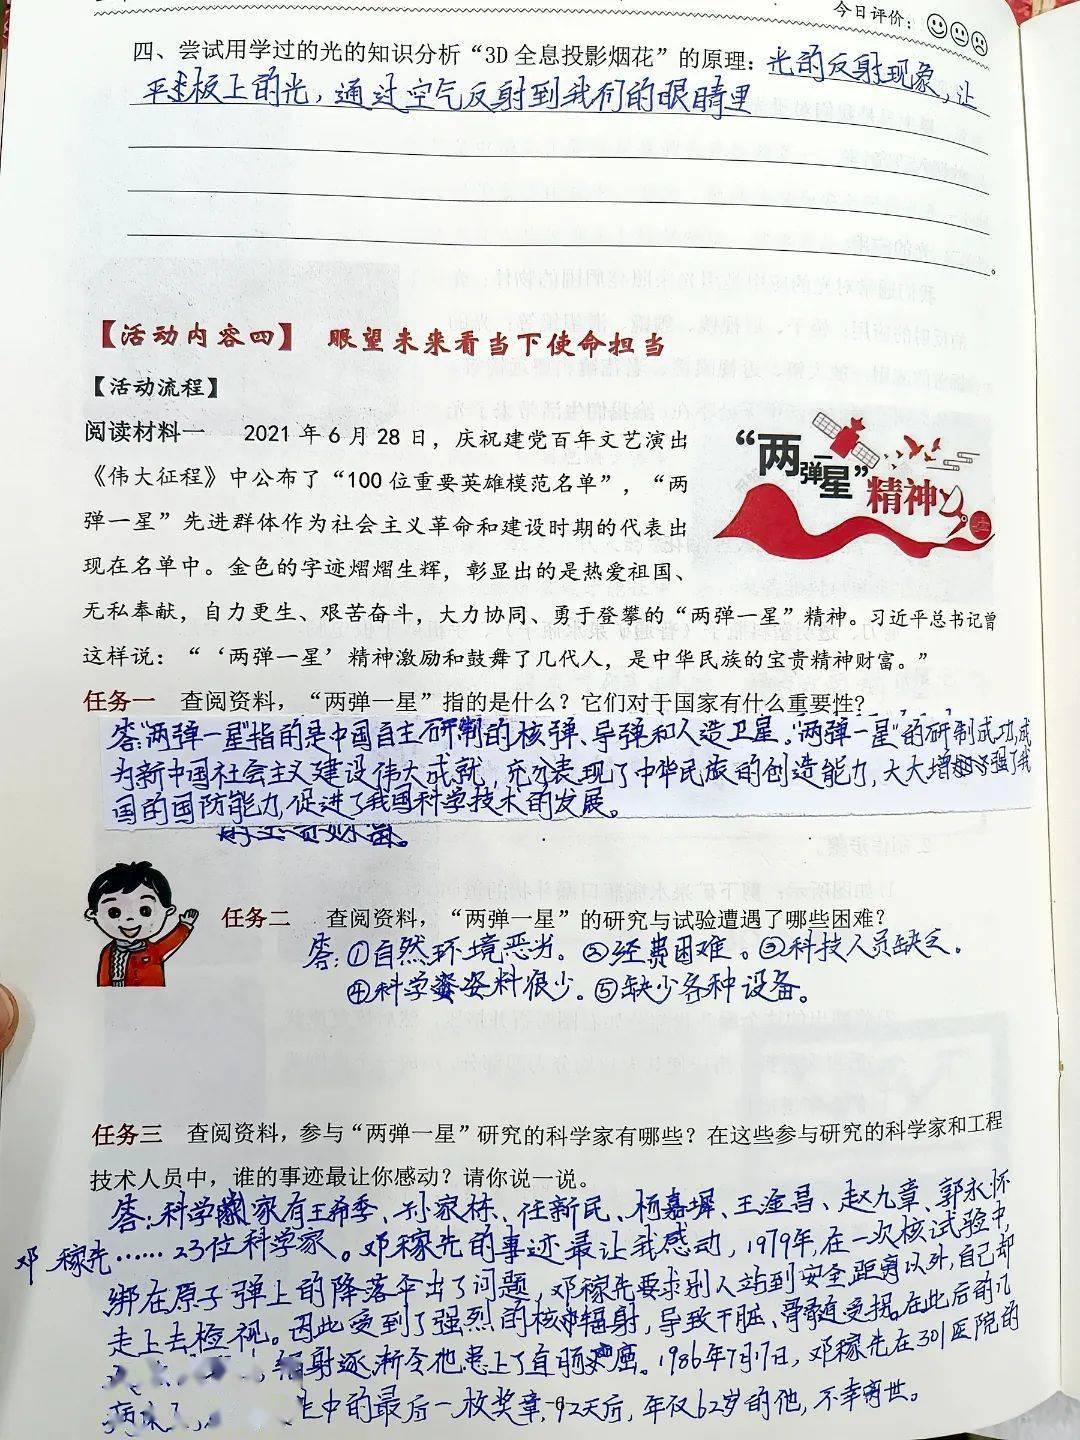 今日评价：
四、尝试用学过的光的知识分析“3D 全息投影烟花”的原理：光的反射现象，让
平板上的光，通过空气反射到我们的眼睛里
【活动内容四】 眼望未来看当下使命担当
【活动流程】
阅读材料一 2021 年 6 月 28 日，庆祝建党百年文艺演出
《伟大征程》中公布了“100 位重要英雄模范名单”，“两
弹一星”先进群体作为社会主义革命和建设时期的代表出
现在名单中。金色的字迹熠熠生辉，彰显出的是热爱祖国、
无私奉献，自力更生、艰苦奋斗，大力协同、勇于登攀的“两弹一星”精神。习近平总书记曾
这样说：“‘两弹一星’精神激励和鼓舞了几代人，是中华民族的宝贵精神财富。”
“两弹一星”精神
任务一 查阅资料，“两弹一星”指的是什么？它们对于国家有什么重要性？
答:“两弹一星”指的是中国自主研制的核弹、导弹和人造卫星。“两弹一星”的研制成功,成
为新中国社会主义建设伟大成就，充分表现了中华民族的创造能力,大大增强了我
国的国防能力,促进了我国科学技术的发展。
任务二 查阅资料，“两弹一星”的研究与试验遭遇了哪些困难？
答:①自然环境恶劣。②经费困难。③科技人员缺乏.
④科学资料很少。⑤缺少各种设备。
任务三 查阅资料，参与“两弹一星”研究的科学家有哪些？在这些参与研究的科学家和工程
技术人员中，谁的事迹最让你感动？请你说一说。
答:科学家有王希季、孙家栋、任新民、杨嘉墀、王淦昌、赵九章、郭永怀
邓稼先……23位科学家。邓稼先的事迹最让我感动,1979年,在一次核试验中,
绑在原子弹上的降落伞出了问题,邓稼先要求别人站到安全距离以外,自己却
走上去检视。因此受到了强烈的核辐射,导致干脏、骨髓受损.在此后的几
辐射逐渐令他患上了直肠癌。1986年7月17日,邓稼先在301医院的
生中的最后一枚奖章,12天后,年仅62岁的他,不幸离世。